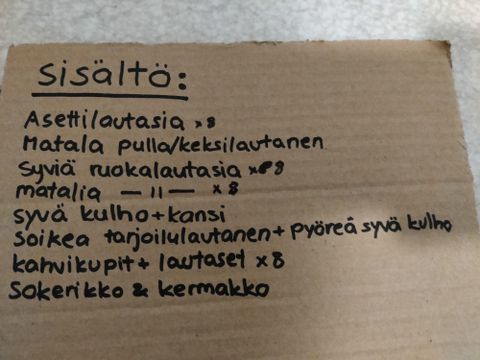 Sisältö:
Asettilautasia x 8
Matala pulla/keksilautanen
Syviä ruokalautasia x 8
matalia — 11 — x 8
syvä kulho + kansi
Soikea tarjoilulautanen + pyöreä syvä kulho
kahvikupit + lautaset x 8
Sokerikko & kermakko